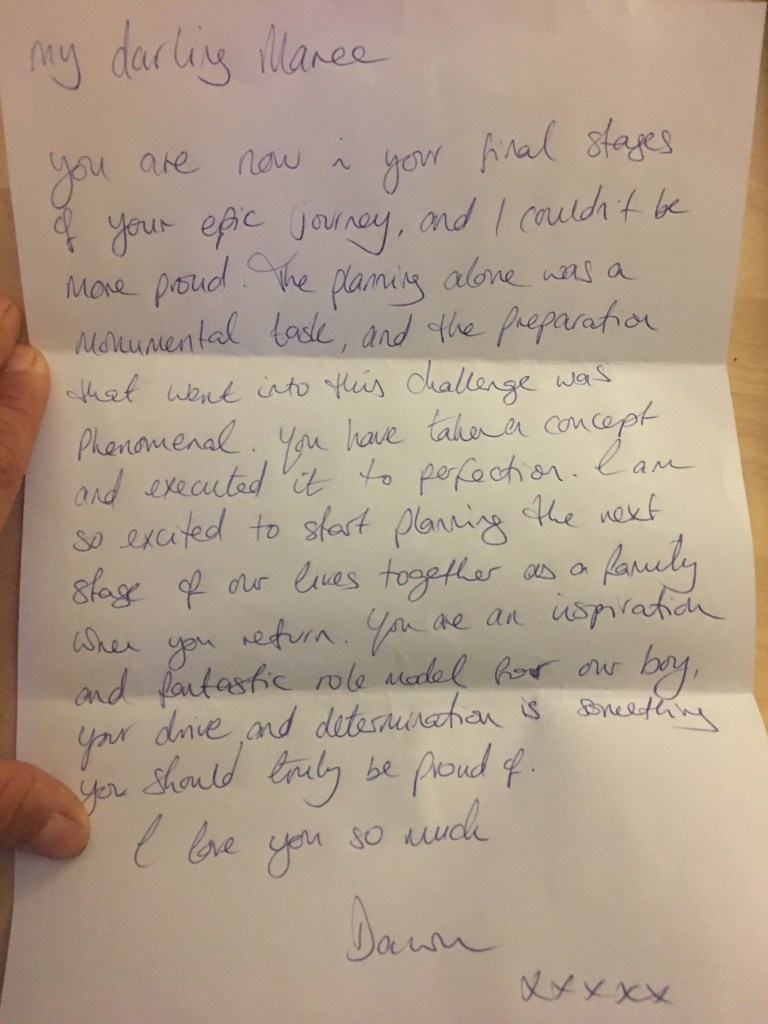 my darling Maree
you are now in your final stages
of your epic journey, and I couldn't be
more proud. The planning alone was a
monumental task, and the preparation
that went into this challenge was
phenomenal. You have taken a concept
and executed it to perfection. I am
so excited to start planning the next
stage of our lives together as a family
when you return. You are an inspiration
and fantastic role model for our boy,
your drive and determination is something
you should truly be proud of.
I love you so much
Dawn
xxxxx